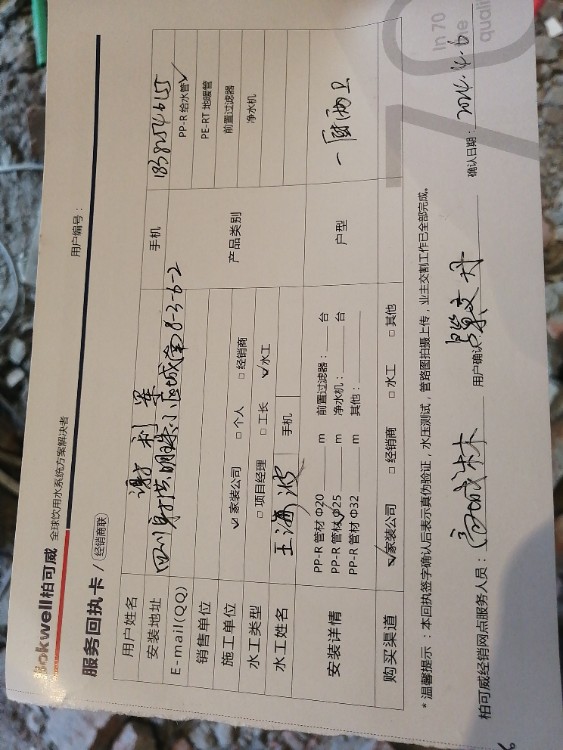 Bokwell柏可威 全球饮用水系统方案解决者
服务回执卡 / (经销商联)
用户编号：
用户姓名 谢利军 手机 18382546155
安装地址 明珠小区城南8-3-6-2
E-mail(QQ)
销售单位 产品类别 PP-R 给水管✓
施工单位 ✓家装公司 □ 个人 □ 经销商 PE-RT 地暖管
水工类型 □ 项目经理 □ 工长 ✓水工 前置过滤器
水工姓名 王海波 手机 净水机
安装详情 PP-R 管材 Φ20 m 前置过滤器： 台 户型 一厨两卫
PP-R 管材 Φ25 m 净水机： 台
PP-R 管材 Φ32 m 其他：
购买渠道 ✓家装公司 □ 经销商 □ 水工 □ 其他
* 温馨提示：本回执签字确认后表示真伪验证，水压测试，管路图拍摄上传，业主交割工作已全部完成。
柏可威经销网点服务人员： 用户确认： 确认日期：2024.4.6
70
In 70
the
quali